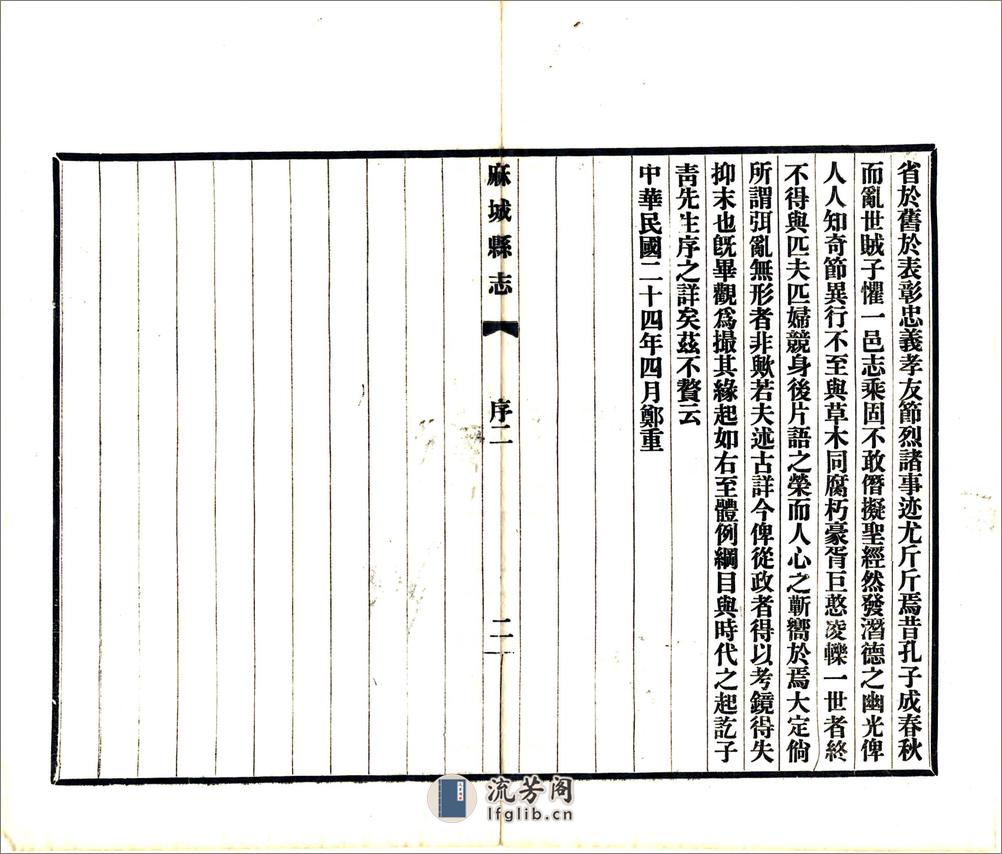 省於舊於表彰忠義孝友節烈諸事迹尤斤斤焉昔孔子成春秋
而亂世賊子懼一邑志乘固不敢僭擬聖經然發濳德之幽光俾
人人知奇節異行不至與草木同腐朽豪胥巨憝凌轢一世者終
不得與匹夫匹婦競身後片語之榮而人心之蘄嚮於焉大定倘
所謂弭亂無形者非歟若夫述古詳今俾從政者得以考鏡得失
抑末也旣畢觀爲撮其緣起如右至體例綱目與時代之起訖子
靑先生序之詳矣茲不贅云
中華民國二十四年四月鄭重
麻城縣志
序二
二
流芳阁
lfglib.cn